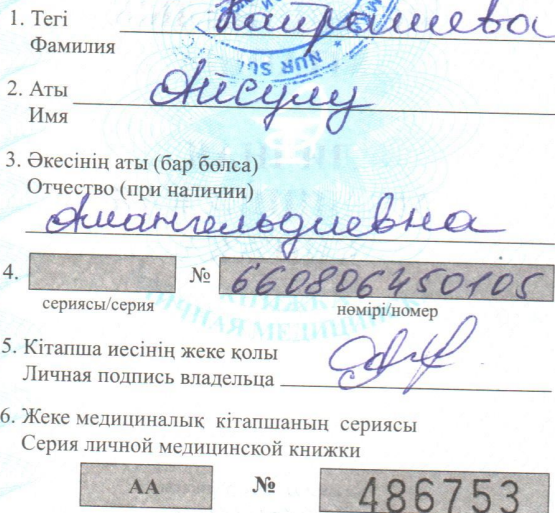 1. Тегі
Фамилия Каирашева
NUR SUL
2. Аты Айсулу
Имя
3. Әкесінің аты (бар болса)
Отчество (при наличии)
Амангельдиевна
4. № 660806450105
сериясы/серия нөмірі/номер
5. Кітапша иесінің жеке қолы
Личная подпись владельца
6. Жеке медициналық кітапшаның сериясы
Серия личной медицинской книжки
АА № 486753